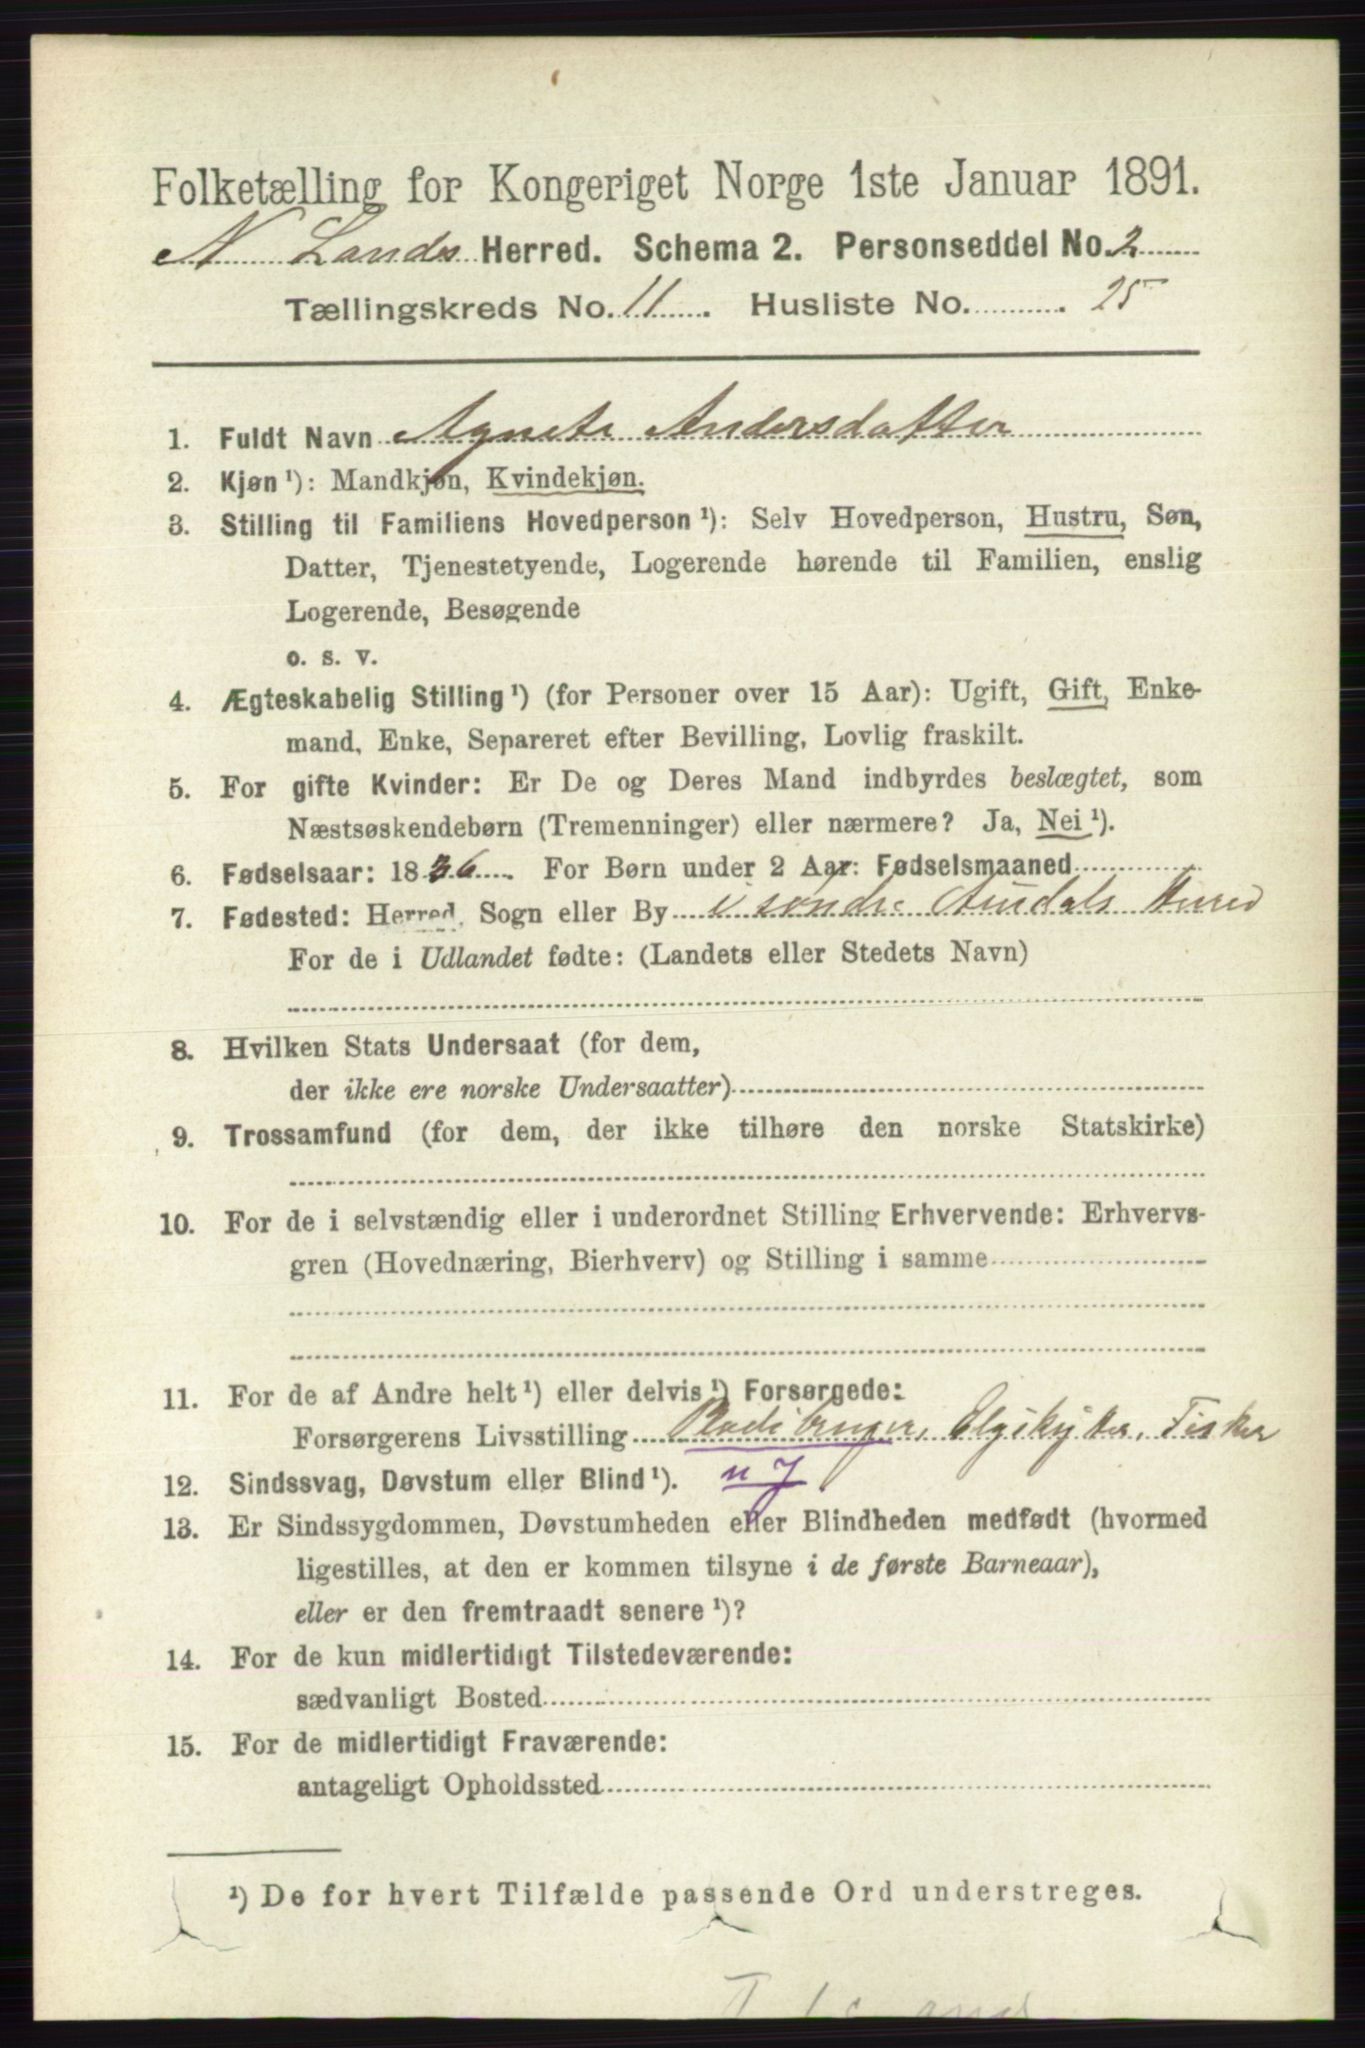 Folketælling for Kongeriget Norge 1ste Januar 1891.
N. Lands Herred. Schema 2. Personseddel No. 2
Tællingskreds No. 11. Husliste No. 25
1. Fuldt Navn Agnete Andersdatter
2. Kjøn ¹): Mandkjøn, Kvindekjøn.
3. Stilling til Familiens Hovedperson ¹): Selv Hovedperson, Hustru, Søn,
Datter, Tjenestetyende, Logerende hørende til Familien, enslig
Logerende, Besøgende
o. s. v.
4. Ægteskabelig Stilling ¹) (for Personer over 15 Aar): Ugift, Gift, Enke-
mand, Enke, Separeret efter Bevilling, Lovlig fraskilt.
5. For gifte Kvinder: Er De og Deres Mand indbyrdes beslægtet, som
Næstsøskendebørn (Tremenninger) eller nærmere? Ja, Nei ¹).
6. Fødselsaar: 1836. For Børn under 2 Aar: Fødselsmaaned
7. Fødested: Herred, Sogn eller By i søndre Aurdals Herred
For de i Udlandet fødte: (Landets eller Stedets Navn)
8. Hvilken Stats Undersaat (for dem,
der ikke ere norske Undersaatter)
9. Trossamfund (for dem, der ikke tilhøre den norske Statskirke)
10. For de i selvstændig eller i underordnet Stilling Erhvervende: Erhvervs-
gren (Hovednæring, Bierhverv) og Stilling i samme
11. For de af Andre helt ¹) eller delvis ¹) Forsørgede:
Forsørgerens Livsstilling Elgskytter, Fisker
12. Sindssvag, Døvstum eller Blind ¹).
13. Er Sindssygdommen, Døvstumheden eller Blindheden medfødt (hvormed
ligestilles, at den er kommen tilsyne i de første Barneaar),
eller er den fremtraadt senere ¹)?
14. For de kun midlertidigt Tilstedeværende:
sædvanligt Bosted
15. For de midlertidigt Fraværende:
antageligt Opholdssted
¹) De for hvert Tilfælde passende Ord understreges.